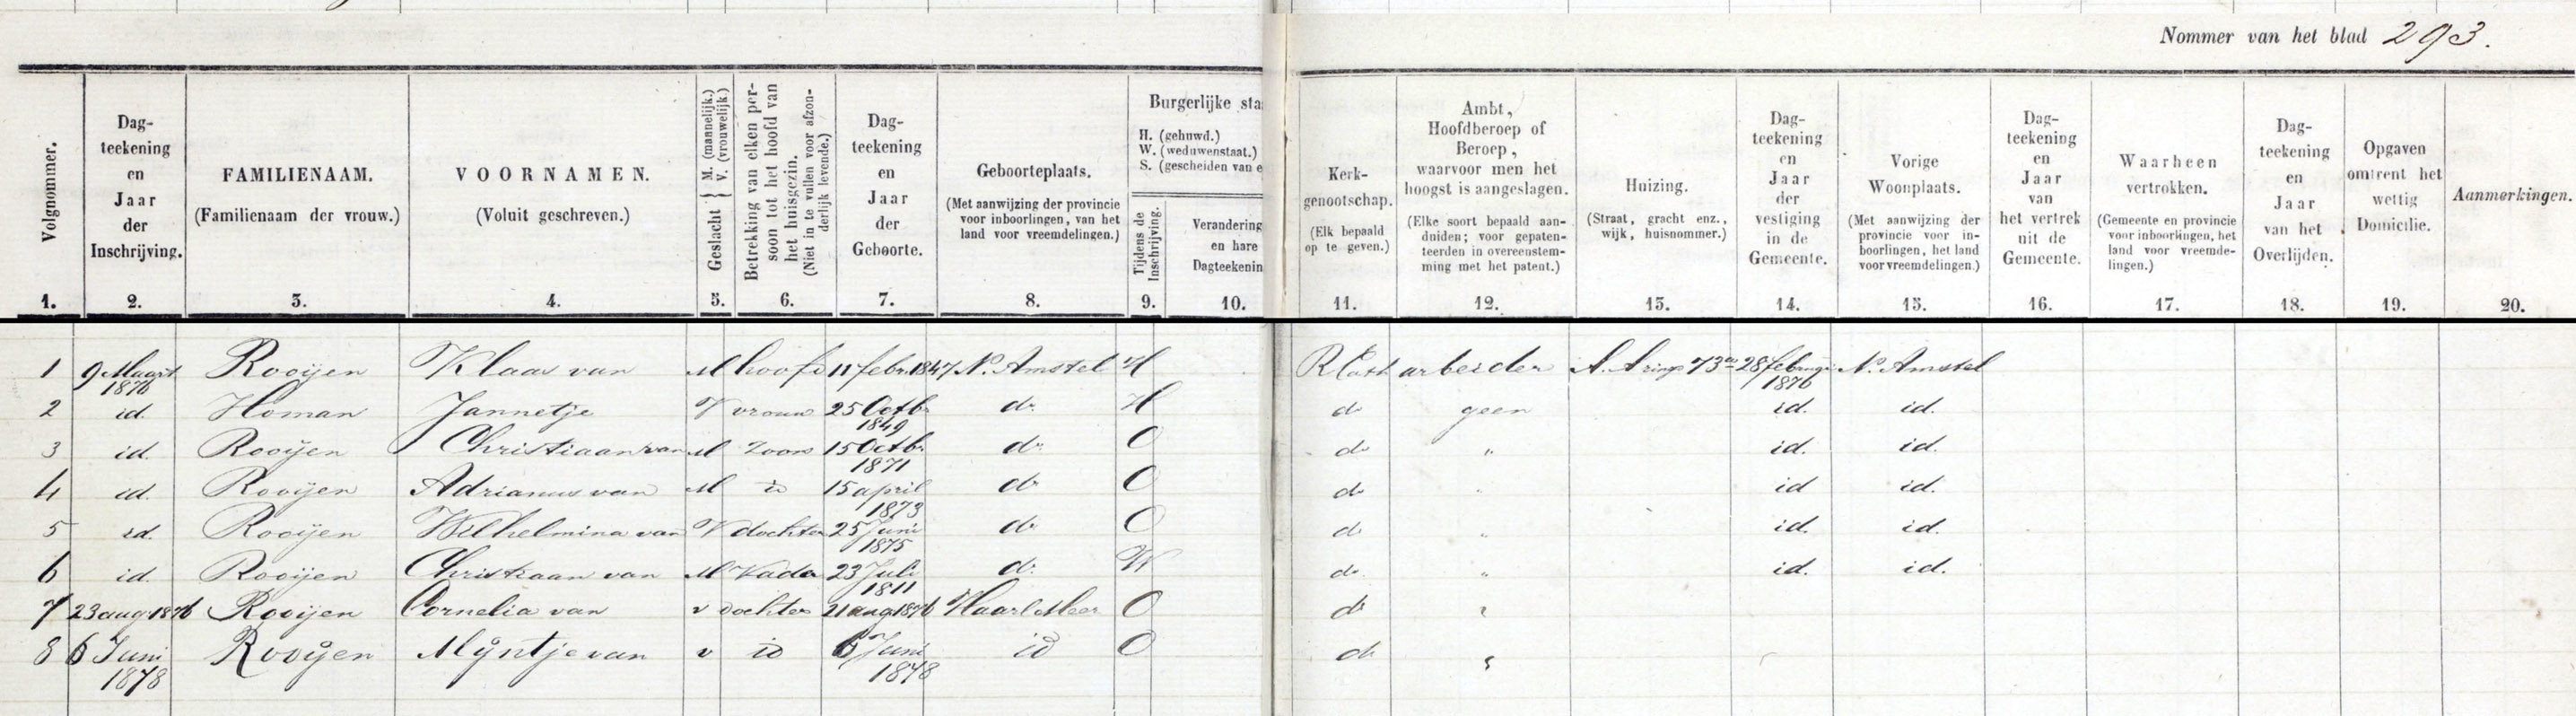 Nommer van het blad 293.
Volgnommer.
Dag-
teekening
en
Jaar
der
Inschrijving.
FAMILIENAAM.
(Familienaam der vrouw.)
VOORNAMEN.
(Voluit geschreven.)
Geslacht } M. (mannelijk.)
V. (vrouwelijk.)
Betrekking van elken per-
soon tot het hoofd van
het huisgezin.
(Niet in te vullen voor afzon-
derlijk levende.)
Dag-
teekening
en
Jaar
der
Geboorte.
Geboorteplaats.
(Met aanwijzing der provincie
voor inboorlingen, van het
land voor vreemdelingen.)
Burgerlijke sta
H. (gehuwd.)
W. (weduwenstaat.)
S. (gescheiden van e
Tijdens de
Inschrijving.
Verandering
en hare
Dagteekenin
Kerk-
genootschap.
(Elk bepaald
op te geven.)
Ambt,
Hoofdberoep of
Beroep,
waarvoor men het
hoogst is aangeslagen.
(Elke soort bepaald aan-
duiden; voor gepaten-
teerden in overeenstem-
ming met het patent.)
Huizing.
(Straat, gracht enz.,
wijk, huisnommer.)
Dag-
teekening
en
Jaar
der
vestiging
in de
Gemeente.
Vorige
Woonplaats.
(Met aanwijzing der
provincie voor in-
boorlingen, het land
voor vreemdelingen.)
Dag-
teekening
en
Jaar
van
het vertrek
uit de
Gemeente.
Waarheen
vertrokken.
(Gemeente en provincie
voor inboorlingen, het
land voor vreemde-
lingen.)
Dag-
teekening
en
Jaar
van het
Overlijden.
Opgaven
omtrent het
wettig
Domicilie.
Aanmerkingen.
1. 2. 3. 4. 5. 6. 7. 8. 9. 10. 11. 12. 13. 14. 15. 16. 17. 18. 19. 20.
1 9 Maart 1876 Rooijen Klaas van M hoofd 11 febr. 1847 N. Amstel H R Cath arbeider 28 februarij 1876 N. Amstel
2 id. Homan Jannetje V vrouw 25 Octb. 1849 do. H do geen id. id.
3 id. Rooijen Christiaan van M Zoon 15 Octb. 1871 do. O do " id. id.
4 id. Rooijen Adrianus van M id 15 april 1873 do O do " id id.
5 id. Rooijen Wilhelmina van V dochter 25 Juni 1875 do O do " id. id.
6 id. Rooijen Christiaan van M Vader 23 Juli 1811 do. W do. " id. id.
7 23 aug 1876 Rooijen Cornelia van v dochter 21 aug 1876 O do "
8 6 Juni 1878 Rooijen Mijntje van v id 6 Juni 1878 id O do "